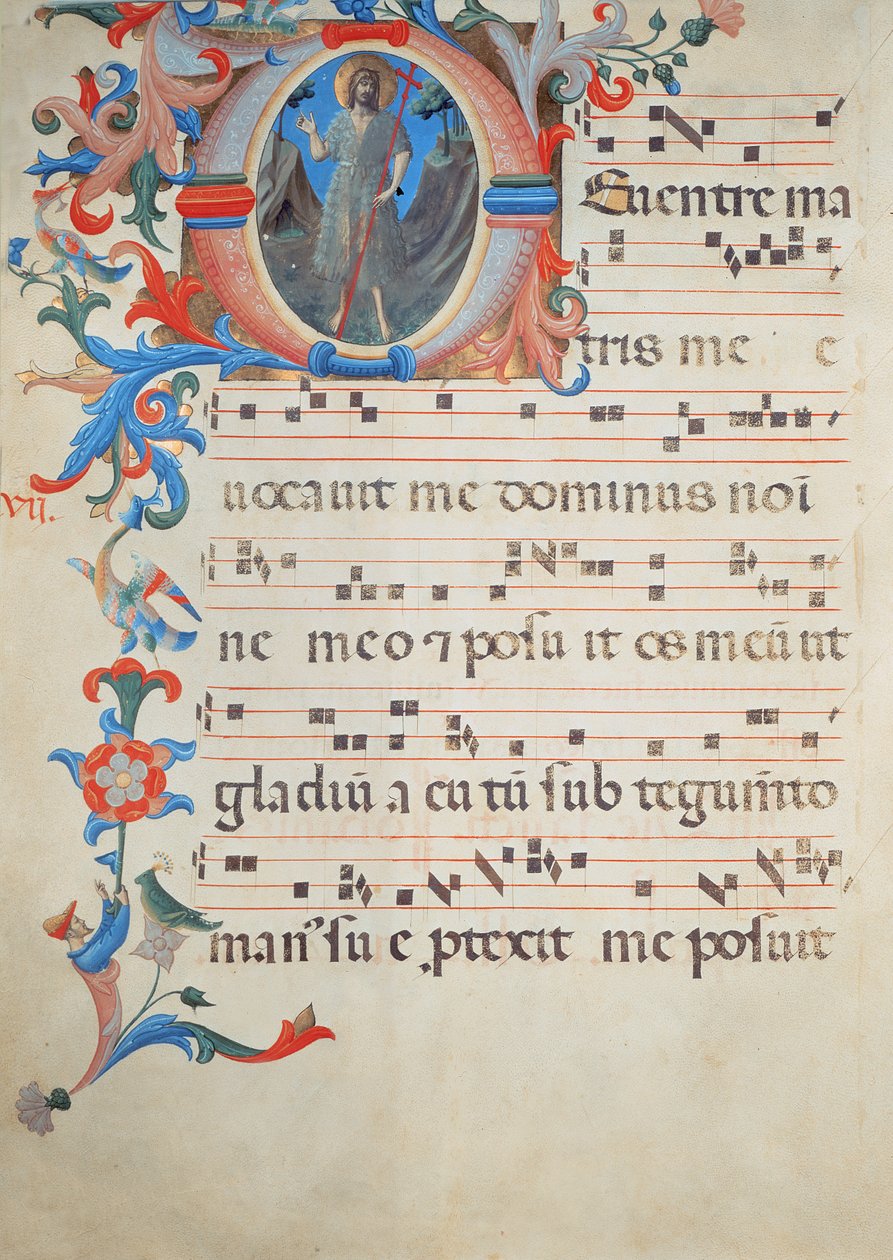 Euentre ma
tris me e
uocauit me dominus noī
ne meo ⁊ posu it os meū ut
gladiū a cu tū sub tegum̄to
man᷒ su e ꝓtexit me posuit
VII.